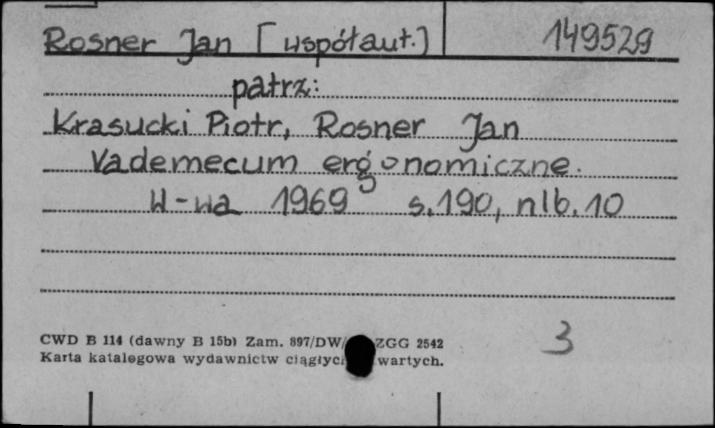 Rosner Jan [współaut.] 149529
patrz:
Krasucki Piotr, Rosner Jan
Vademecum ergonomiczne.
W-wa 1969 s.190, nlb.10
3
CWD B 114 (dawny B 15b) Zam. 897/DW/ ZGG 2542
Karta katalogowa wydawnictw